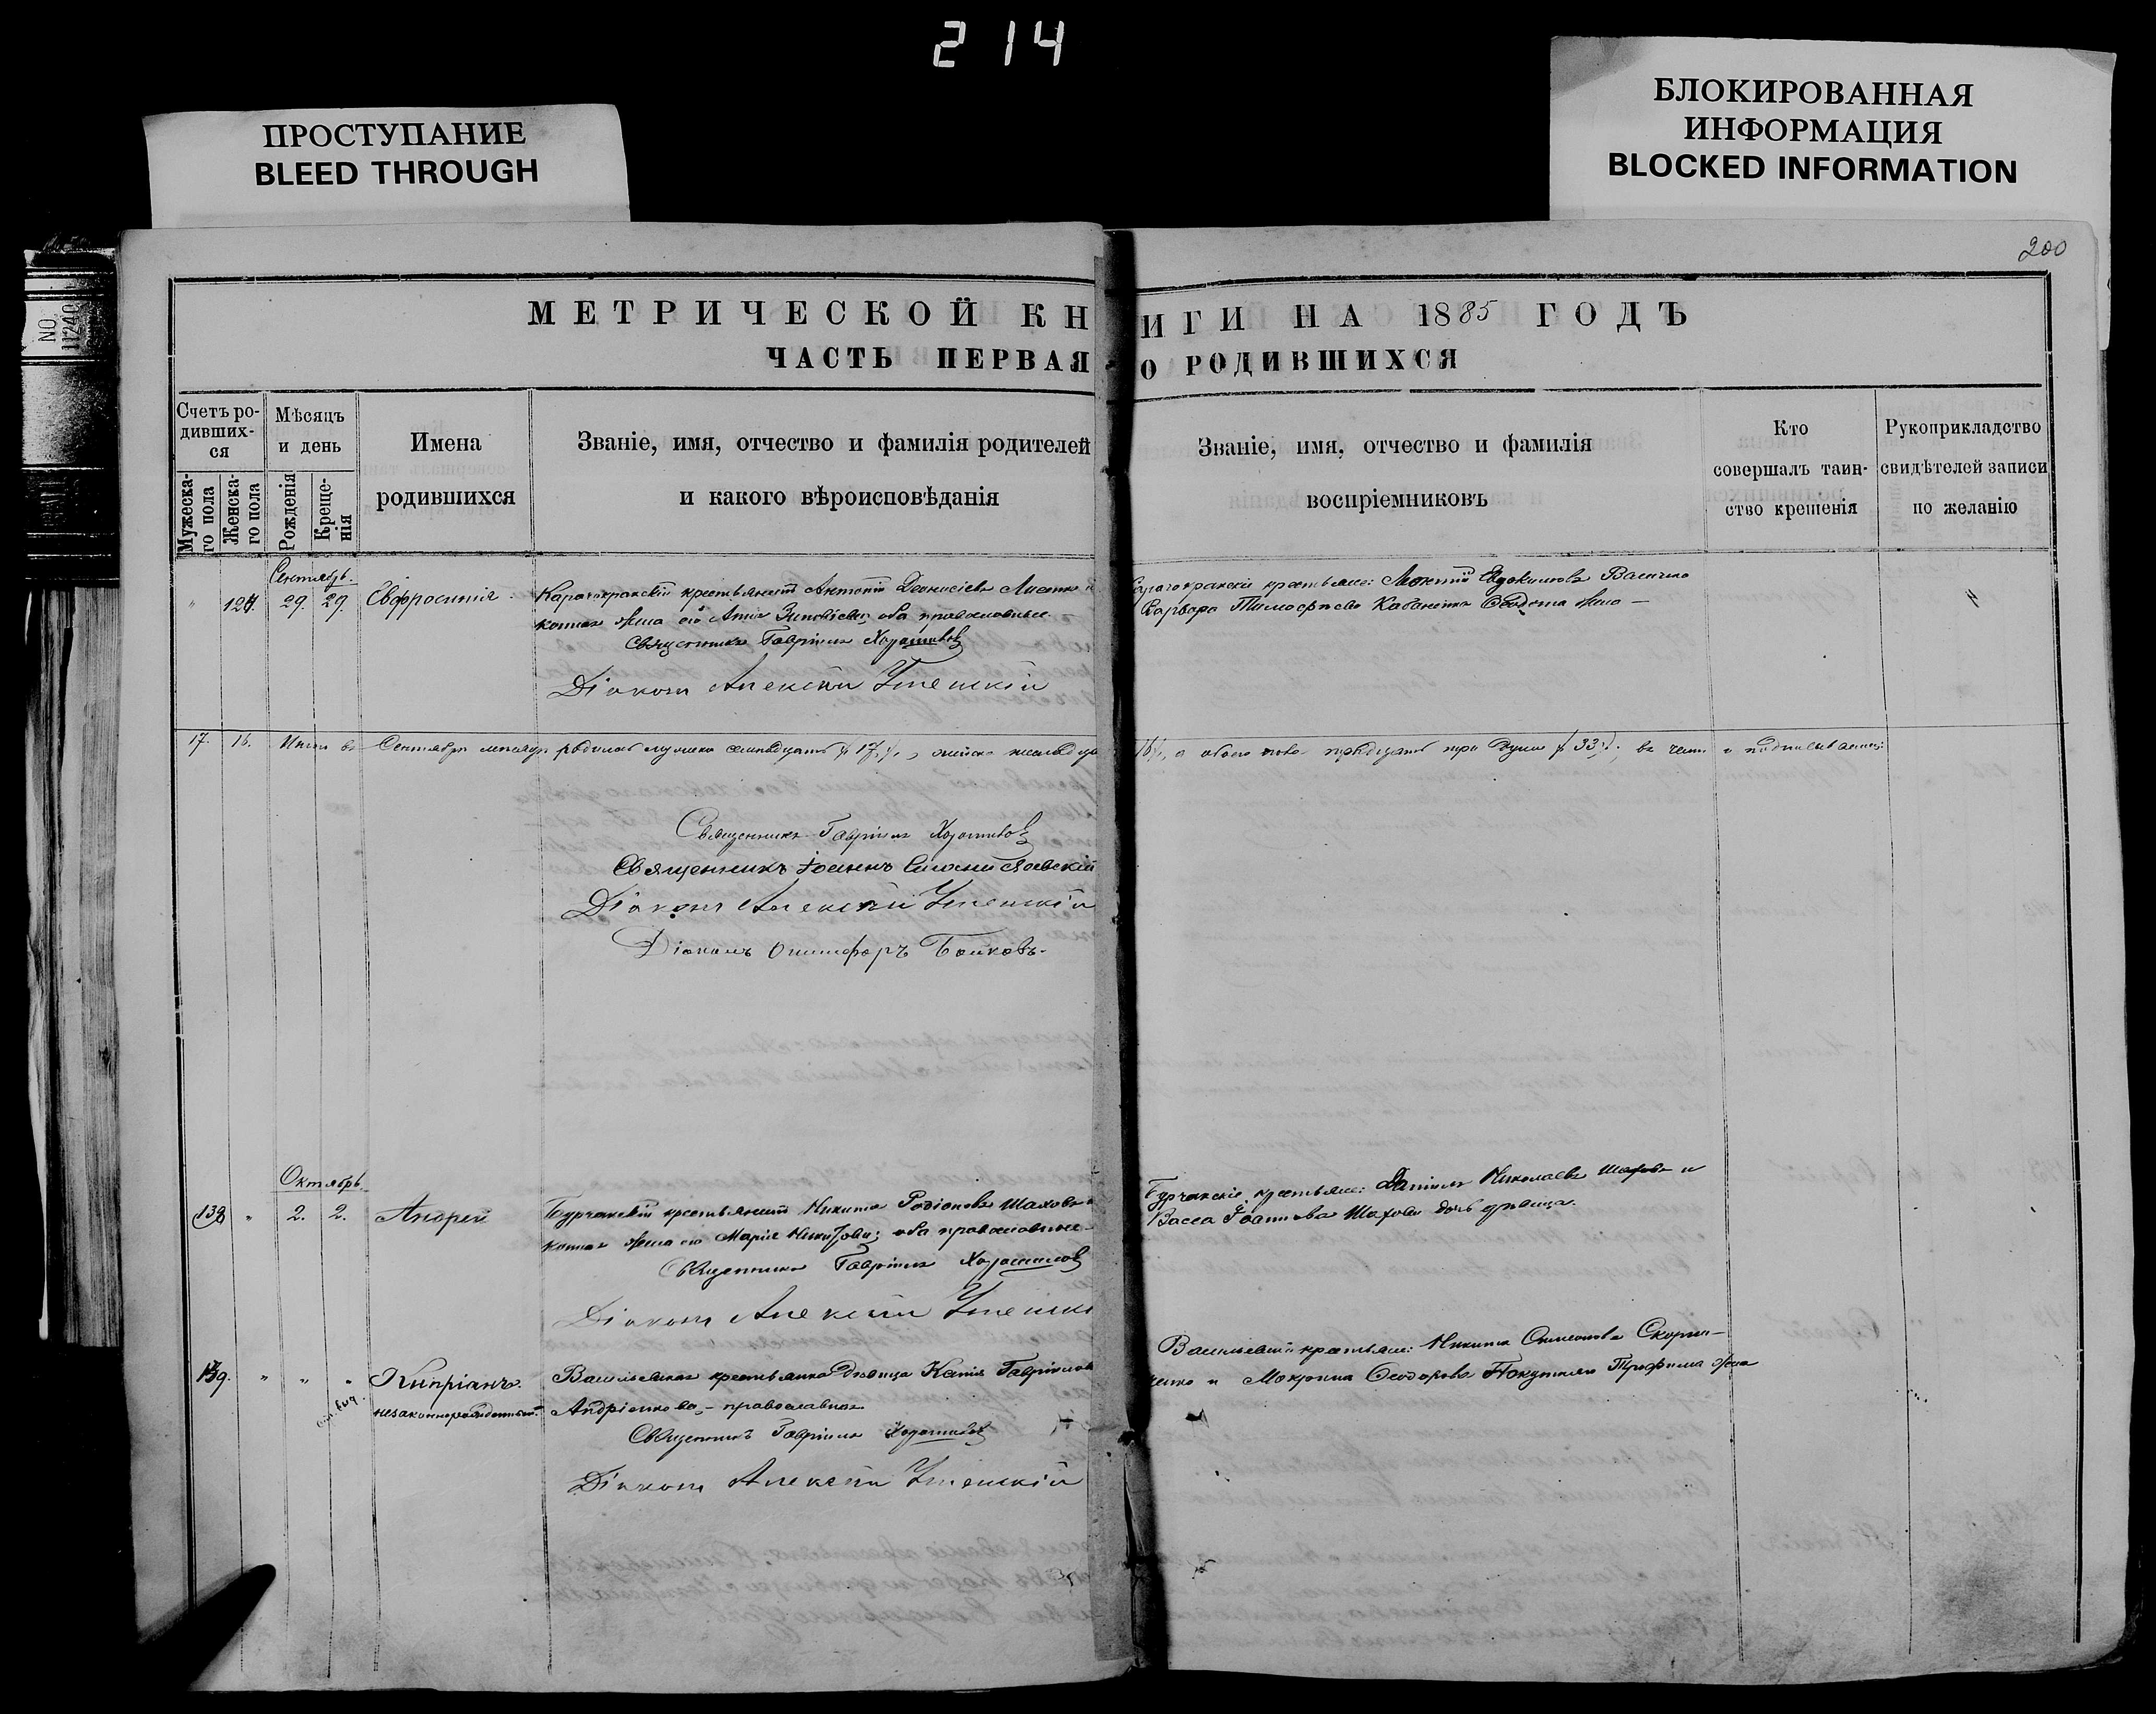 214
ПРОСТУПАНИЕ
BLEED THROUGH
БЛОКИРОВАННАЯ
ИНФОРМАЦИЯ
BLOCKED INFORMATION
NO
11240
200
МЕТРИЧЕСКОЙ КНИГИ НА 1885 ГОДЪ
ЧАСТЬ ПЕРВАЯ О РОДИВШИХСЯ
Счетъ ро-
дивших-
ся
Мужеска-
го пола
Женска-
го пола
Мѣсяцъ
и день
Рожденія
Креще-
нія
Имена
родившихся
Званіе, имя, отчество и фамилія родителей
и какого вѣроисповѣданія
Званіе, имя, отчество и фамилія
воспріемниковъ
Кто
совершалъ таин-
ство крещенія
Рукоприкладство
свидѣтелей записи
по желанію
Сентябрь.
" 124. 29. 29. Евфросинія.
крестьянинъ Антоній Діонисіевъ
жена его Анна Зиновіева; оба православные
Священникъ Гавріилъ Хорошиловъ
Діаконъ Алексій
крестьяне: Евдокимовъ
Варвара Тимофеева Ѳеодота жена
17. 16. Итого въ Сентябрѣ мѣсяцѣ родилось мужеска семнадцать (17), женска
16), а обоего пола тридцать три души (33), въ чемъ и подписываемся:
Священникъ Гавріилъ Хорошиловъ
Священникъ Іоаннъ
Діаконъ Алексій
Діаконъ Онисифоръ Бойковъ.
Октябрь.
138 " 2. 2. Андрей
Бурчакскій крестьянинъ Никита Родіоновъ Шаховъ и
жена его Марія оба православные
Священникъ Гавріилъ Хорошиловъ
Діаконъ Алексій
Бурчакскіе крестьяне: Даніилъ Николаевъ Шаховъ и
Васса Іоаннова Шахова дочь дѣвица.
139. " " " Кипріанъ.
незаконнорожденный.
Васильевская крестьянка дѣвица Ксенія Гавріилова
Андріенкова, – православная
Священникъ Гавріилъ Хорошиловъ
Діаконъ Алексій
Васильевскіе крестьяне: Никита Симеоновъ
и Мокрина Ѳеодорова Трофима жена